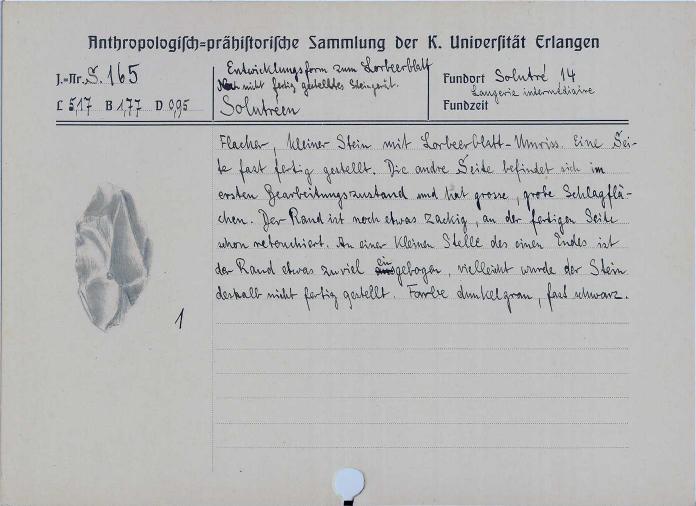 Anthropologisch=prähistorische Sammlung der K. Universität Erlangen
J.=Nr. S. 165
L 5,17 B 1,77 D 0,95
Entwicklungsform zum Lorbeerblatt
Noch nicht fertig gestelltes Steingerät.
Solutréen
Fundort Solutré 14
Laugerie intermédiaire
Fundzeit
Flacher, kleiner Stein mit Lorbeerblatt-Umriss. Eine Sei-
te fast fertig gestellt. Die andre Seite befindet sich im
ersten Bearbeitungszustand und hat grosse, grobe Schlagflä-
chen. Der Rand ist noch etwas zackig, an der fertigen Seite
schon retouchiert. An einer kleinen Stelle des einen Endes ist
der Rand etwas zuviel eingebogen, vielleicht wurde der Stein
deshalb nicht fertig gestellt. Farbe dunkelgrau, fast schwarz.
1